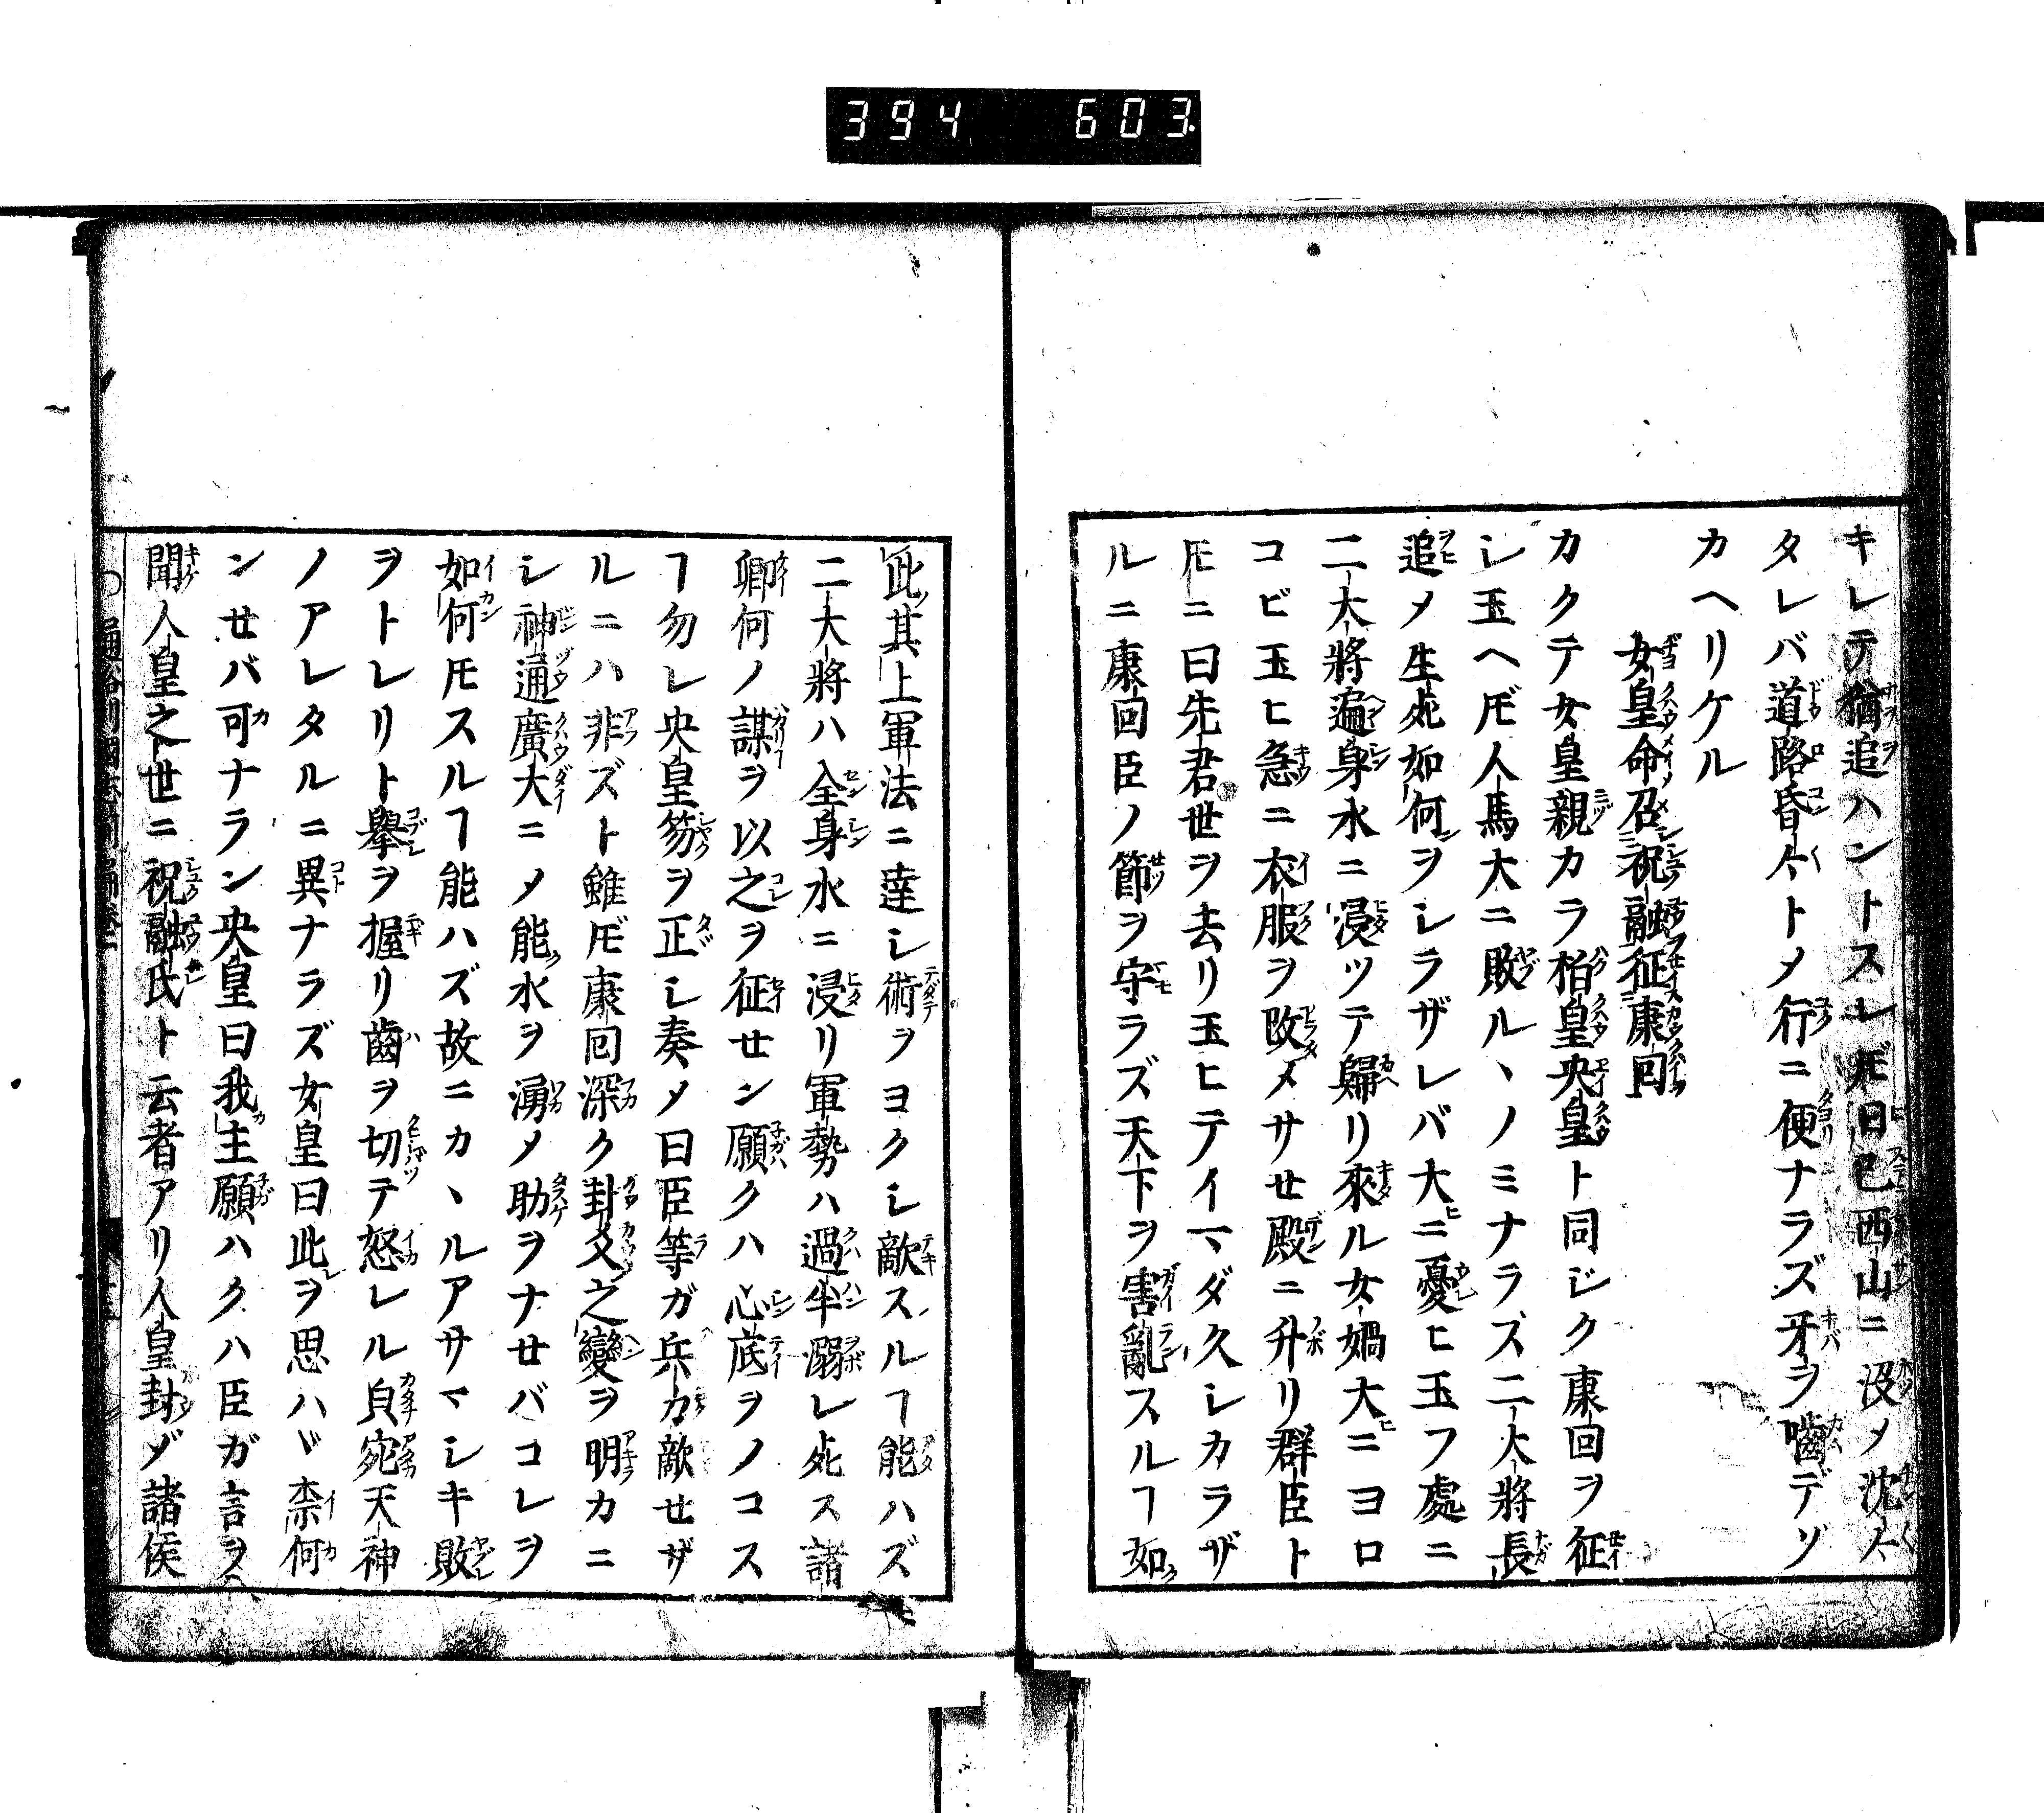 394 603
キレテ猶追ハントスレ𪜈日已西山ニ沒メ沈々
タレバ道路昏々トメ行ニ便ナラズ牙ヲ嚙デゾ
カヘリケル
女皇命召祝融征康回
カクテ女皇親カラ栢皇央皇ト同ジク康回ヲ征
シ玉ヘ𪜈人馬大ニ敗ルヽノミナラズ二大將長
追メ生死如何ヲシラザレバ大ニ憂ヒ玉フ處ニ
二大將遍身水ニ浸ツテ歸リ來ル女媧大ニヨロ
コビ玉ヒ急ニ衣服ヲ改メサセ殿ニ升リ群臣ト
𪜈ニ曰先君世ヲ去リ玉ヒテイマダ久シカラザ
ルニ康回臣ノ節ヲ守ラズ天下ヲ害亂スルヿ如
此其上軍法ニ達シ術ヲヨクシ敵スルヿ能ハズ
二大將ハ全身水ニ浸リ軍勢ハ過半溺レ死ス諸
卿何ノ謀ヲ以之ヲ征セン願クハ心底ヲノコス
ヿ勿レ央皇笏ヲ正シ奏メ曰臣等ガ兵力敵セザ
ルニハ非ズト雖𪜈康回深ク卦爻之變ヲ明カニ
シ神通廣大ニメ能水ヲ湧メ助ヲナセバコレヲ
如何𪜈スルヿ能ハズ故ニカヽルアサマシキ敗
ヲトレリト擧ヲ握リ齒ヲ切テ怒レル皃宛天神
ノアレタルニ異ナラズ女皇曰此ヲ思ハヾ柰何
ンセバ可ナラン央皇曰我主願ハクハ臣ガ言ヲ
聞人皇之世ニ祝融氏ト云者アリ人皇封ゾ諸侯